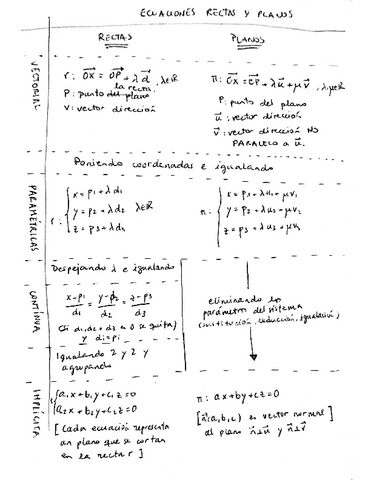 ECUACIONES RECTAS Y PLANOS
RECTAS
PLANOS
VECTORIAL
r: OX = OP + λd, λ∈ℝ
P: punto del plano la recta.
V: vector dirección
π: OX = OP + λu + μv, λ,μ∈ℝ
P: punto del plano
u: vector dirección
v: vector dirección NO
PARALELO a u.
Poniendo coordenadas e igualando
PARAMÉTRICAS
r: { x = p1 + λd1
y = p2 + λd2 λ∈ℝ
z = p3 + λd3
π: { x = p1 + λu1 + μv1
y = p2 + λu2 + μv2
z = p3 + λu3 + μv3
Despejando λ e igualando
CONTINUA
x-p1/d1 = y-p2/d2 = z-p3/d3
(Si d1, d2 o d3 = 0 se quita)
y di=pi
Igualando 2 y 2 y
agrupando
eliminando los
parámetros del sistema
(sustitución, reducción, igualación)
IMPLÍCITA
{ a1x + b1y + c1z = 0
a2x + b2y + c2z = 0
[Cada ecuación representa
un plano que se cortan
en la recta r]
π: ax + by + cz = 0
[n(a,b,c) es vector normal]
al plano n⊥u y n⊥v